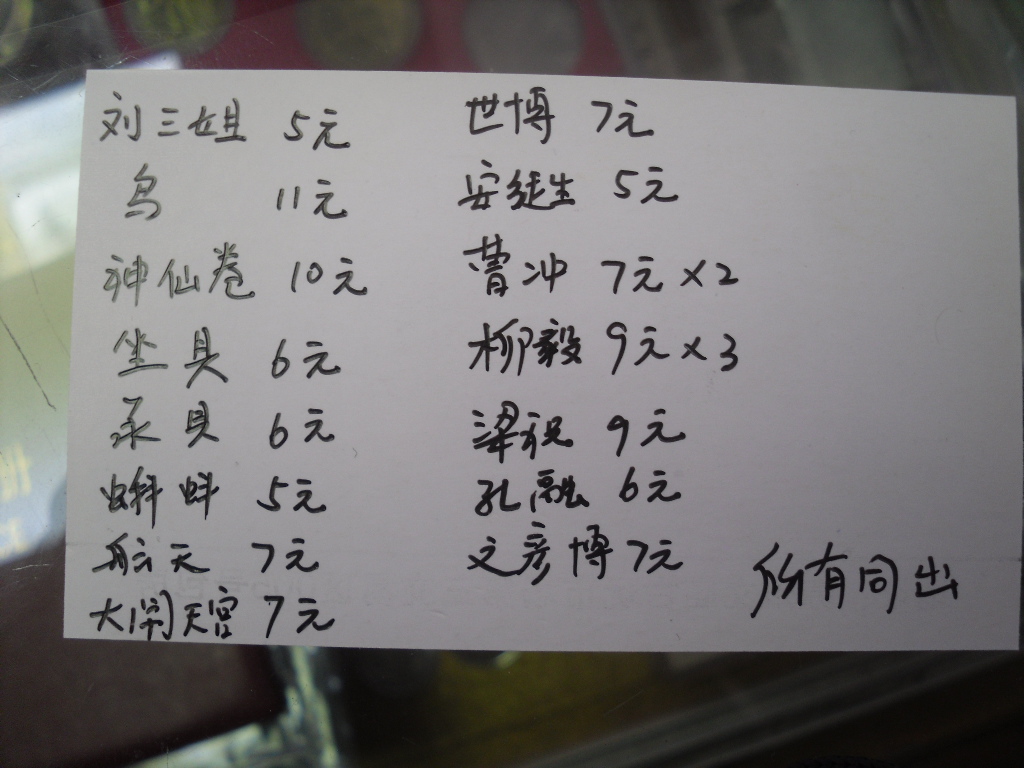 刘三姐 5元
鸟 11元
神仙卷 10元
坐具 6元
承具 6元
蝌蚪 5元
航天 7元
大闹天宫 7元
世博 7元
安徒生 5元
曹冲 7元×2
柳毅 9元×3
梁祝 9元
孔融 6元
文彦博 7元
所有同出